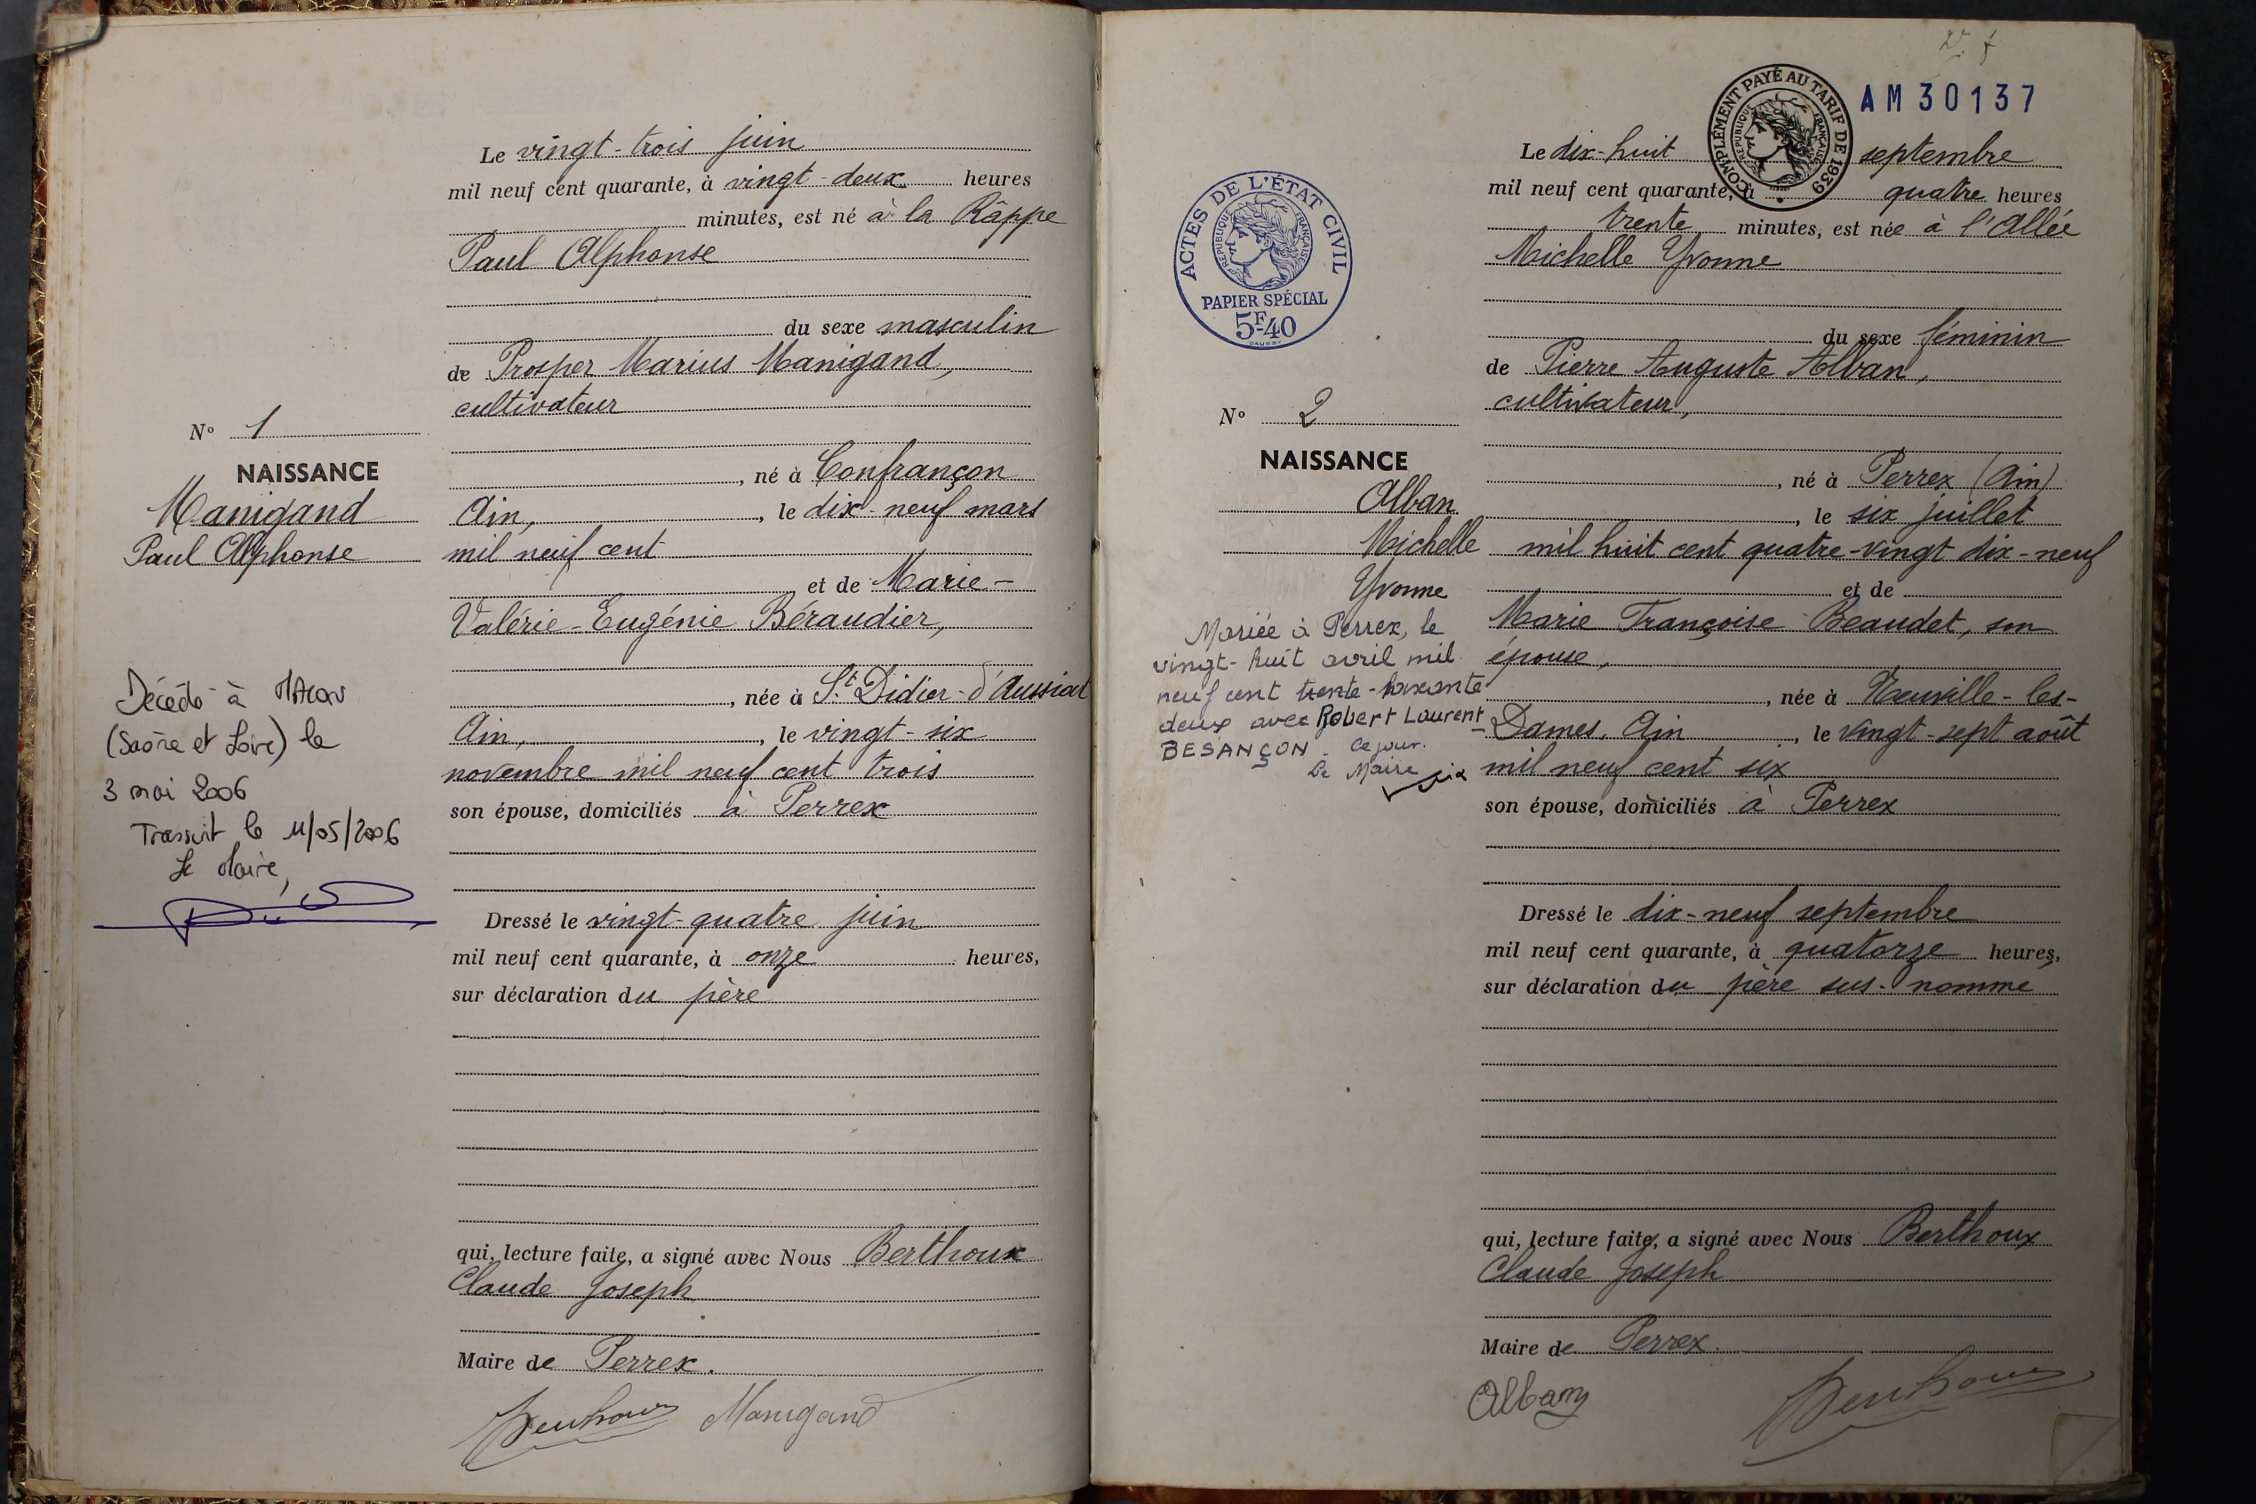 Le vingt-trois juin
mil neuf cent quarante, à vingt-deux heures
minutes, est né à la Râppe
Paul Alphonse
du sexe masculin
de Prosper Marius Manigand,
cultivateur
N° 1
NAISSANCE
Manigand
Paul Alphonse
, né à Confrançon
Ain, , le dix-neuf mars
mil neuf cent
et de Marie-
Valérie-Eugénie Béraudier,
, née à St Didier-d'Aussiat
Ain, , le vingt-six
novembre mil neuf cent trois
son épouse, domiciliés à Perrex
Décédé à Macon
(Saône et Loire) le
3 mai 2006
Transcrit le 11/05/2006
Le Maire,
Dressé le vingt-quatre juin
mil neuf cent quarante, à onze heures,
sur déclaration du père
qui, lecture faite, a signé avec Nous Berthoux
Claude Joseph
Maire de Perrex.
Berthoux Manigand
AM30137
COMPLÉMENT PAYÉ AU TARIF DE 1939
RÉPUBLIQUE FRANÇAISE
ACTES DE L'ÉTAT CIVIL
RÉPUBLIQUE FRANÇAISE
PAPIER SPÉCIAL
5F40
Le dix-huit septembre
mil neuf cent quarante, à quatre heures
trente minutes, est née à l'Allée
Michelle Yvonne
du sexe féminin
de Pierre Auguste Alban,
cultivateur,
N° 2
NAISSANCE
Alban
Michelle
Yvonne
Mariée à Perrex, le
vingt-huit avril mil
neuf cent trente-soixante
deux avec Robert Laurent
BESANÇON. Ce jour.
Le Maire
, né à Perrex (Ain)
, le six juillet
mil huit cent quatre-vingt dix-neuf
et de
Marie Françoise Beaudet, son
épouse,
, née à Neuville-les-
-Dames, Ain , le vingt-sept août
mil neuf cent six
son épouse, domiciliés à Perrex
Dressé le dix-neuf septembre
mil neuf cent quarante, à quatorze heures,
sur déclaration du père sus-nommé
qui, lecture faite, a signé avec Nous Berthoux
Claude Joseph
Maire de Perrex.
Alban Berthoux